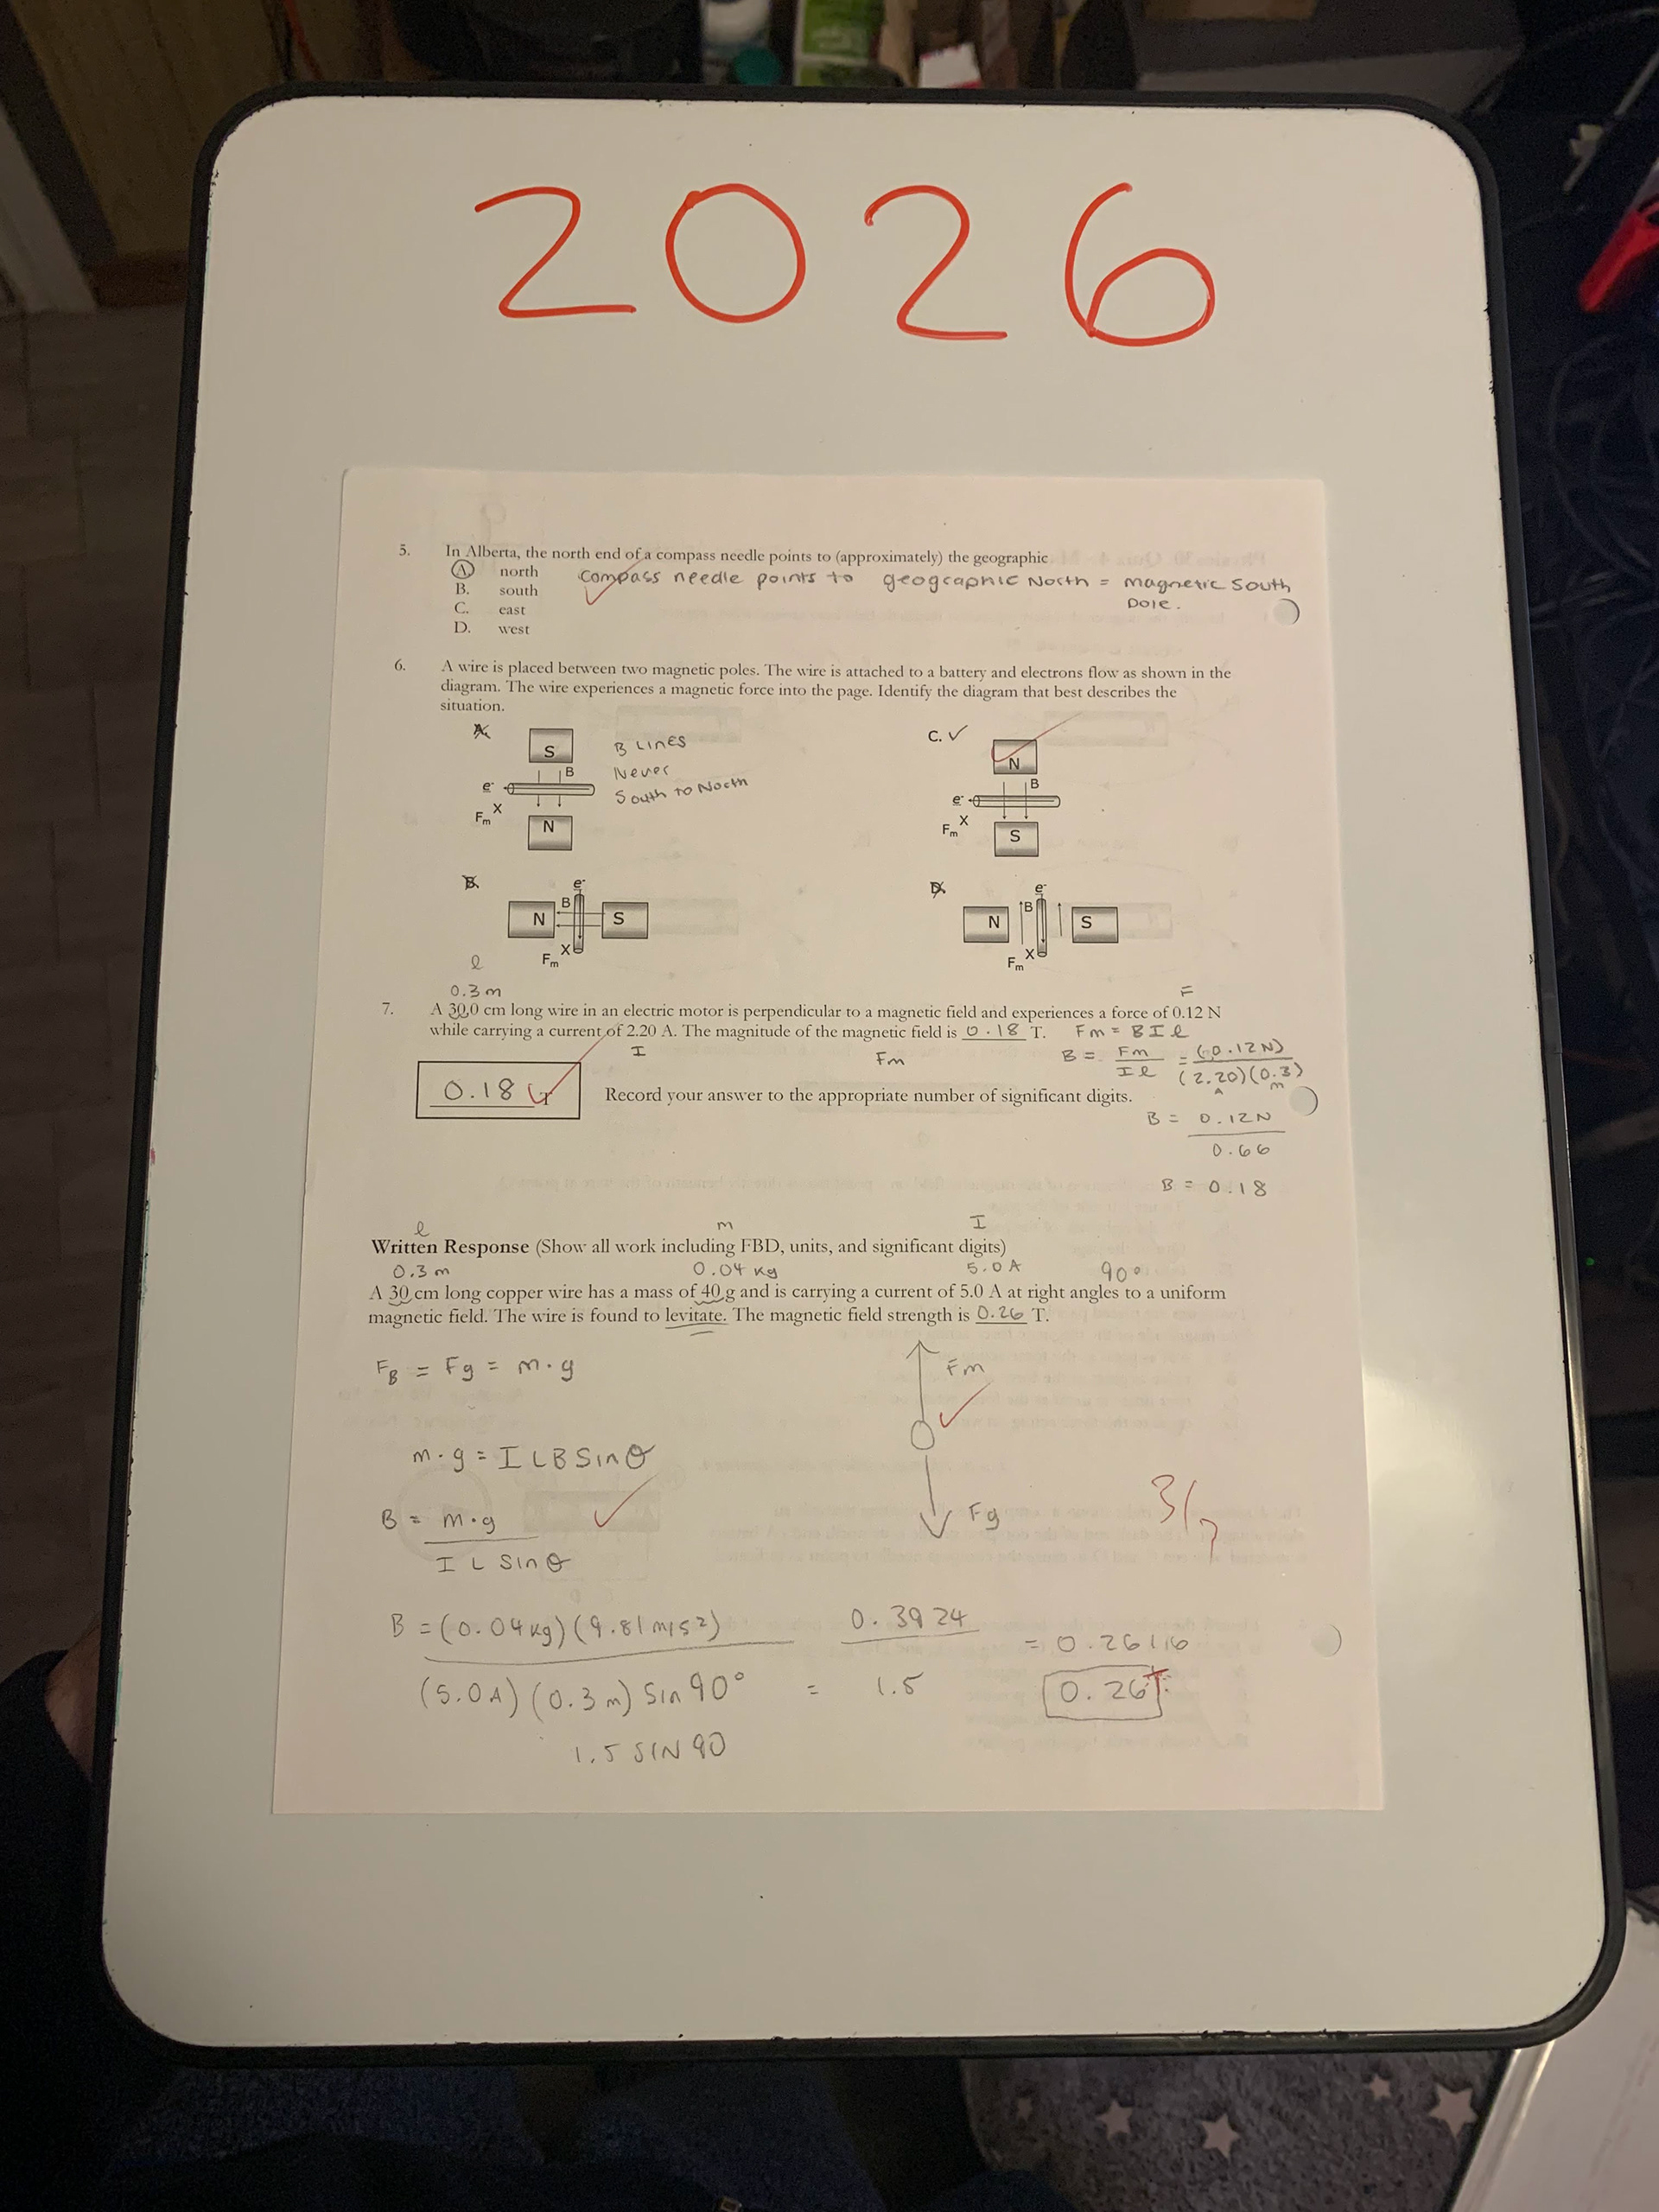 2026
5. In Alberta, the north end of a compass needle points to (approximately) the geographic
A. north
compass needle points to geographic North = magnetic South
pole.
B. south
C. east
D. west
6. A wire is placed between two magnetic poles. The wire is attached to a battery and electrons flow as shown in the
diagram. The wire experiences a magnetic force into the page. Identify the diagram that best describes the
situation.
A.
S
B
e-
X
Fm
N
B Lines
Never
South to North
C. ✓
N
B
e-
X
Fm
S
B.
e-
B
N
S
X
Fm
D.
e-
B
N
S
X
Fm
l
0.3 m
F
7. A 30.0 cm long wire in an electric motor is perpendicular to a magnetic field and experiences a force of 0.12 N
while carrying a current of 2.20 A. The magnitude of the magnetic field is 0.18 T.
I
Fm
Fm = BIl
B = Fm / Il = (0.12N) / (2.20)(0.3)
A m
0.18 T
Record your answer to the appropriate number of significant digits.
B = 0.12N / 0.66
B = 0.18
l m I
Written Response (Show all work including FBD, units, and significant digits)
0.3 m 0.04 kg 5.0 A 90°
A 30 cm long copper wire has a mass of 40 g and is carrying a current of 5.0 A at right angles to a uniform
magnetic field. The wire is found to levitate. The magnetic field strength is 0.26 T.
FB = Fg = m·g
Fm
m·g = ILB Sinθ
B = m·g / I L Sinθ
Fg
3/
B = (0.04kg)(9.81 m/s2) / (5.0A)(0.3m) Sin 90° = 0.3924 / 1.5 = 0.2616
0.26 T
1.5 SIN 90